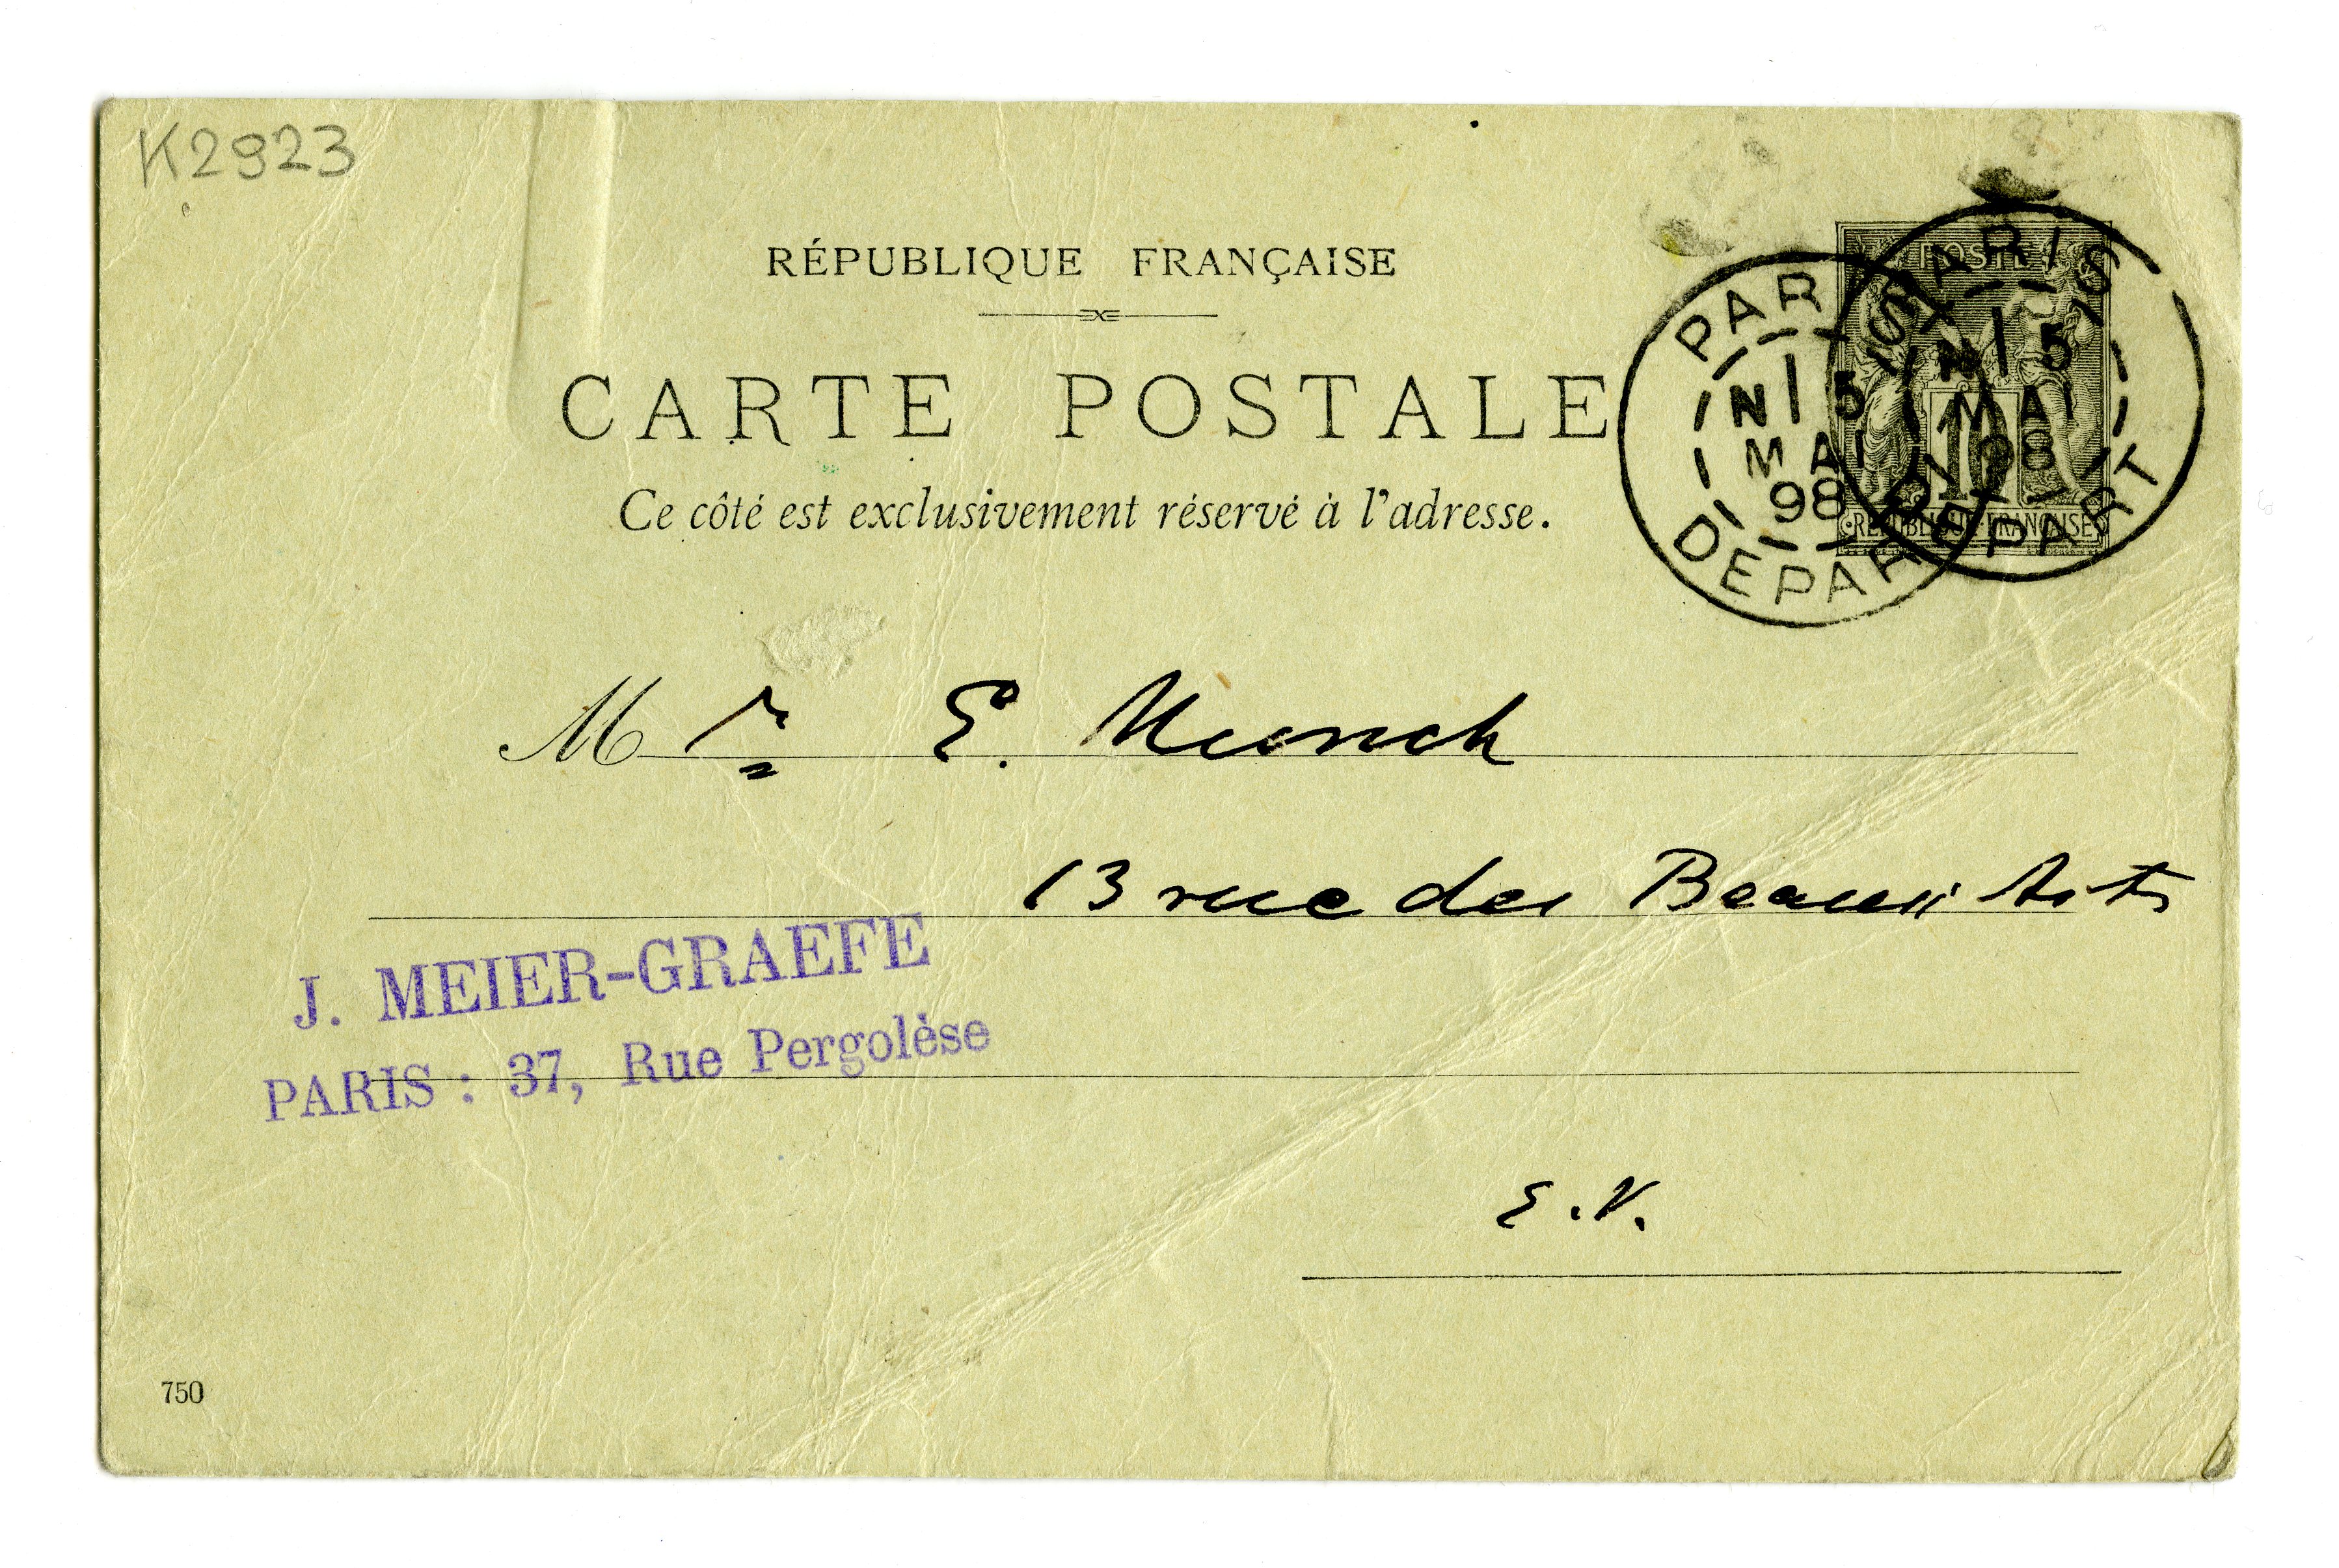 K2923
RÉPUBLIQUE FRANÇAISE
CARTE POSTALE
Ce côté est exclusivement réservé à l'adresse.
POSTE
10
REPUBLIQUE FRANÇAISE
PARIS
N 5
MAI
98
DEPART
PARIS
N 5
MAI
98
DEPART
Mr E. Munch
13 rue des Beaux Arts
J. MEIER-GRAEFE
PARIS : 37, Rue Pergolèse
E.V.
750